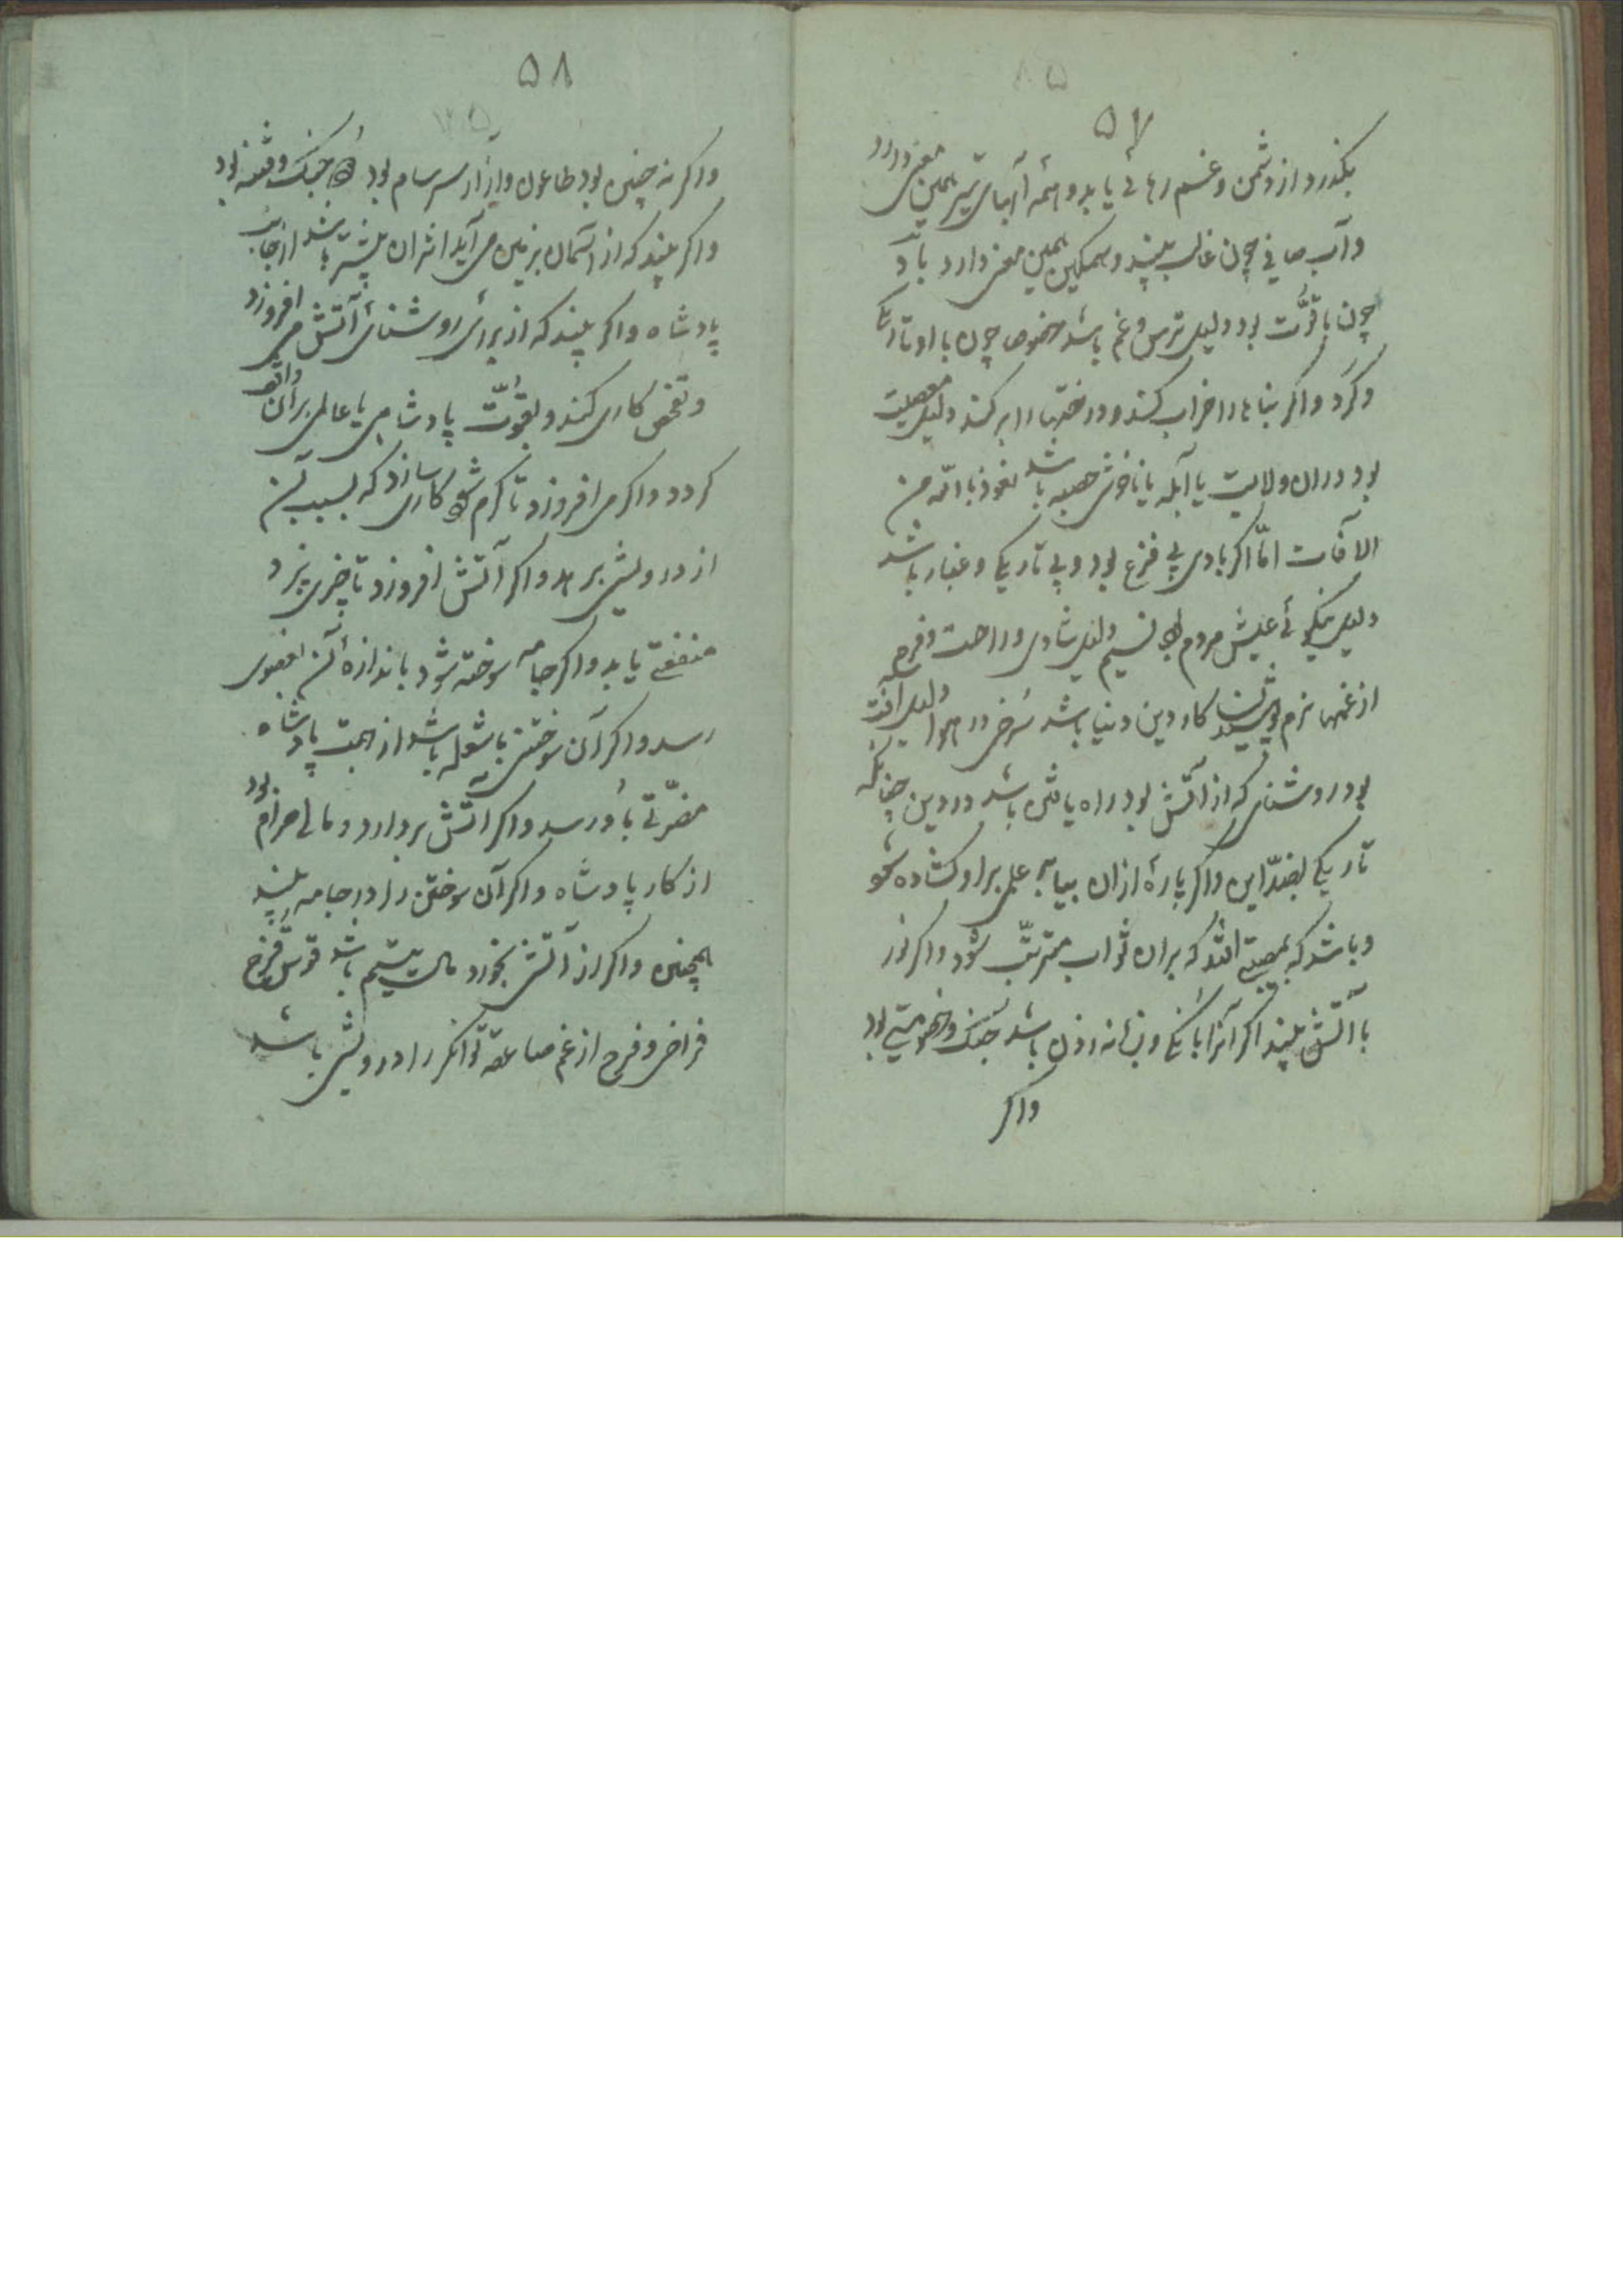 ۵۷
بکذرد از دشمن و غم رهائی یابد و همه آبهای تیره همین معنی دارد
و آب صافی چون غالب بیند و سهمکین همین معنی دارد باد
چون با قوّت بود دلیل ترس و غم باشد خصوص چون با او تاریکی
و کرد و اکر بناها را خراب کند و درختها را برکند دلیل مصیبت
بود دران ولایت یا آبله یا ناخوشی حصبه باشد نعوذ بالله من
الافات امّا اکر بادی بی فزع بود و بی تاریکی و غبار باشد
دلیل نیکوئی عیش مردم بود نسیم دلیل شادی و راحت و فرح
از غمها نرم کار دین و دنیا باشد سرخی در هوا دلیل آفت
بود روشنای که از آتش بود راه یافتن باشد در دین چنانکه
تاریکی بضدّ این و اکر پارهٔ ازان بیابد علمی بر او کشاده شود
و باشد که بمصیبتی افتد که بران ثواب مترتّب شود و اکر نور
با آتش بیند اکر آنرا بانکی و زبانه زدن باشد جنک و خصومتی بود
واکر
۵۸
واکر نه چنین بود طاعون و آزار سرسام بود و جنک و فتنه بود
واکر بیند که از آسمان بزمین می آید اثران بیشتر باشد از جانب
پادشاه واکر بیند که از برای روشنای آتش می افروزد
و تفحص کاری کند و بقوّت پادشاهی یا عالمی بران واقف
کردد واکر می افروزد تا کرم شود کاری سازد که بسبب آن
از درویشی برهد واکر آتش افروزد تا چیزی پزد
منفعتی یابد واکر جامه سوخته شود باندازهٔ آن بعضوی
رسد واکر آن سوختن با شعله باشد از جهت پادشاه
مضرّتی باو رسد واکر آتش بردارد و مالی حرام بود
از کار پادشاه واکر آن سوختن را در جامه بیند
همچنین واکر از آتش بخورد مال یتیم باشد قوس قزح
فراخی و فرح از غم صاعقه توانکر را درویشی باشد